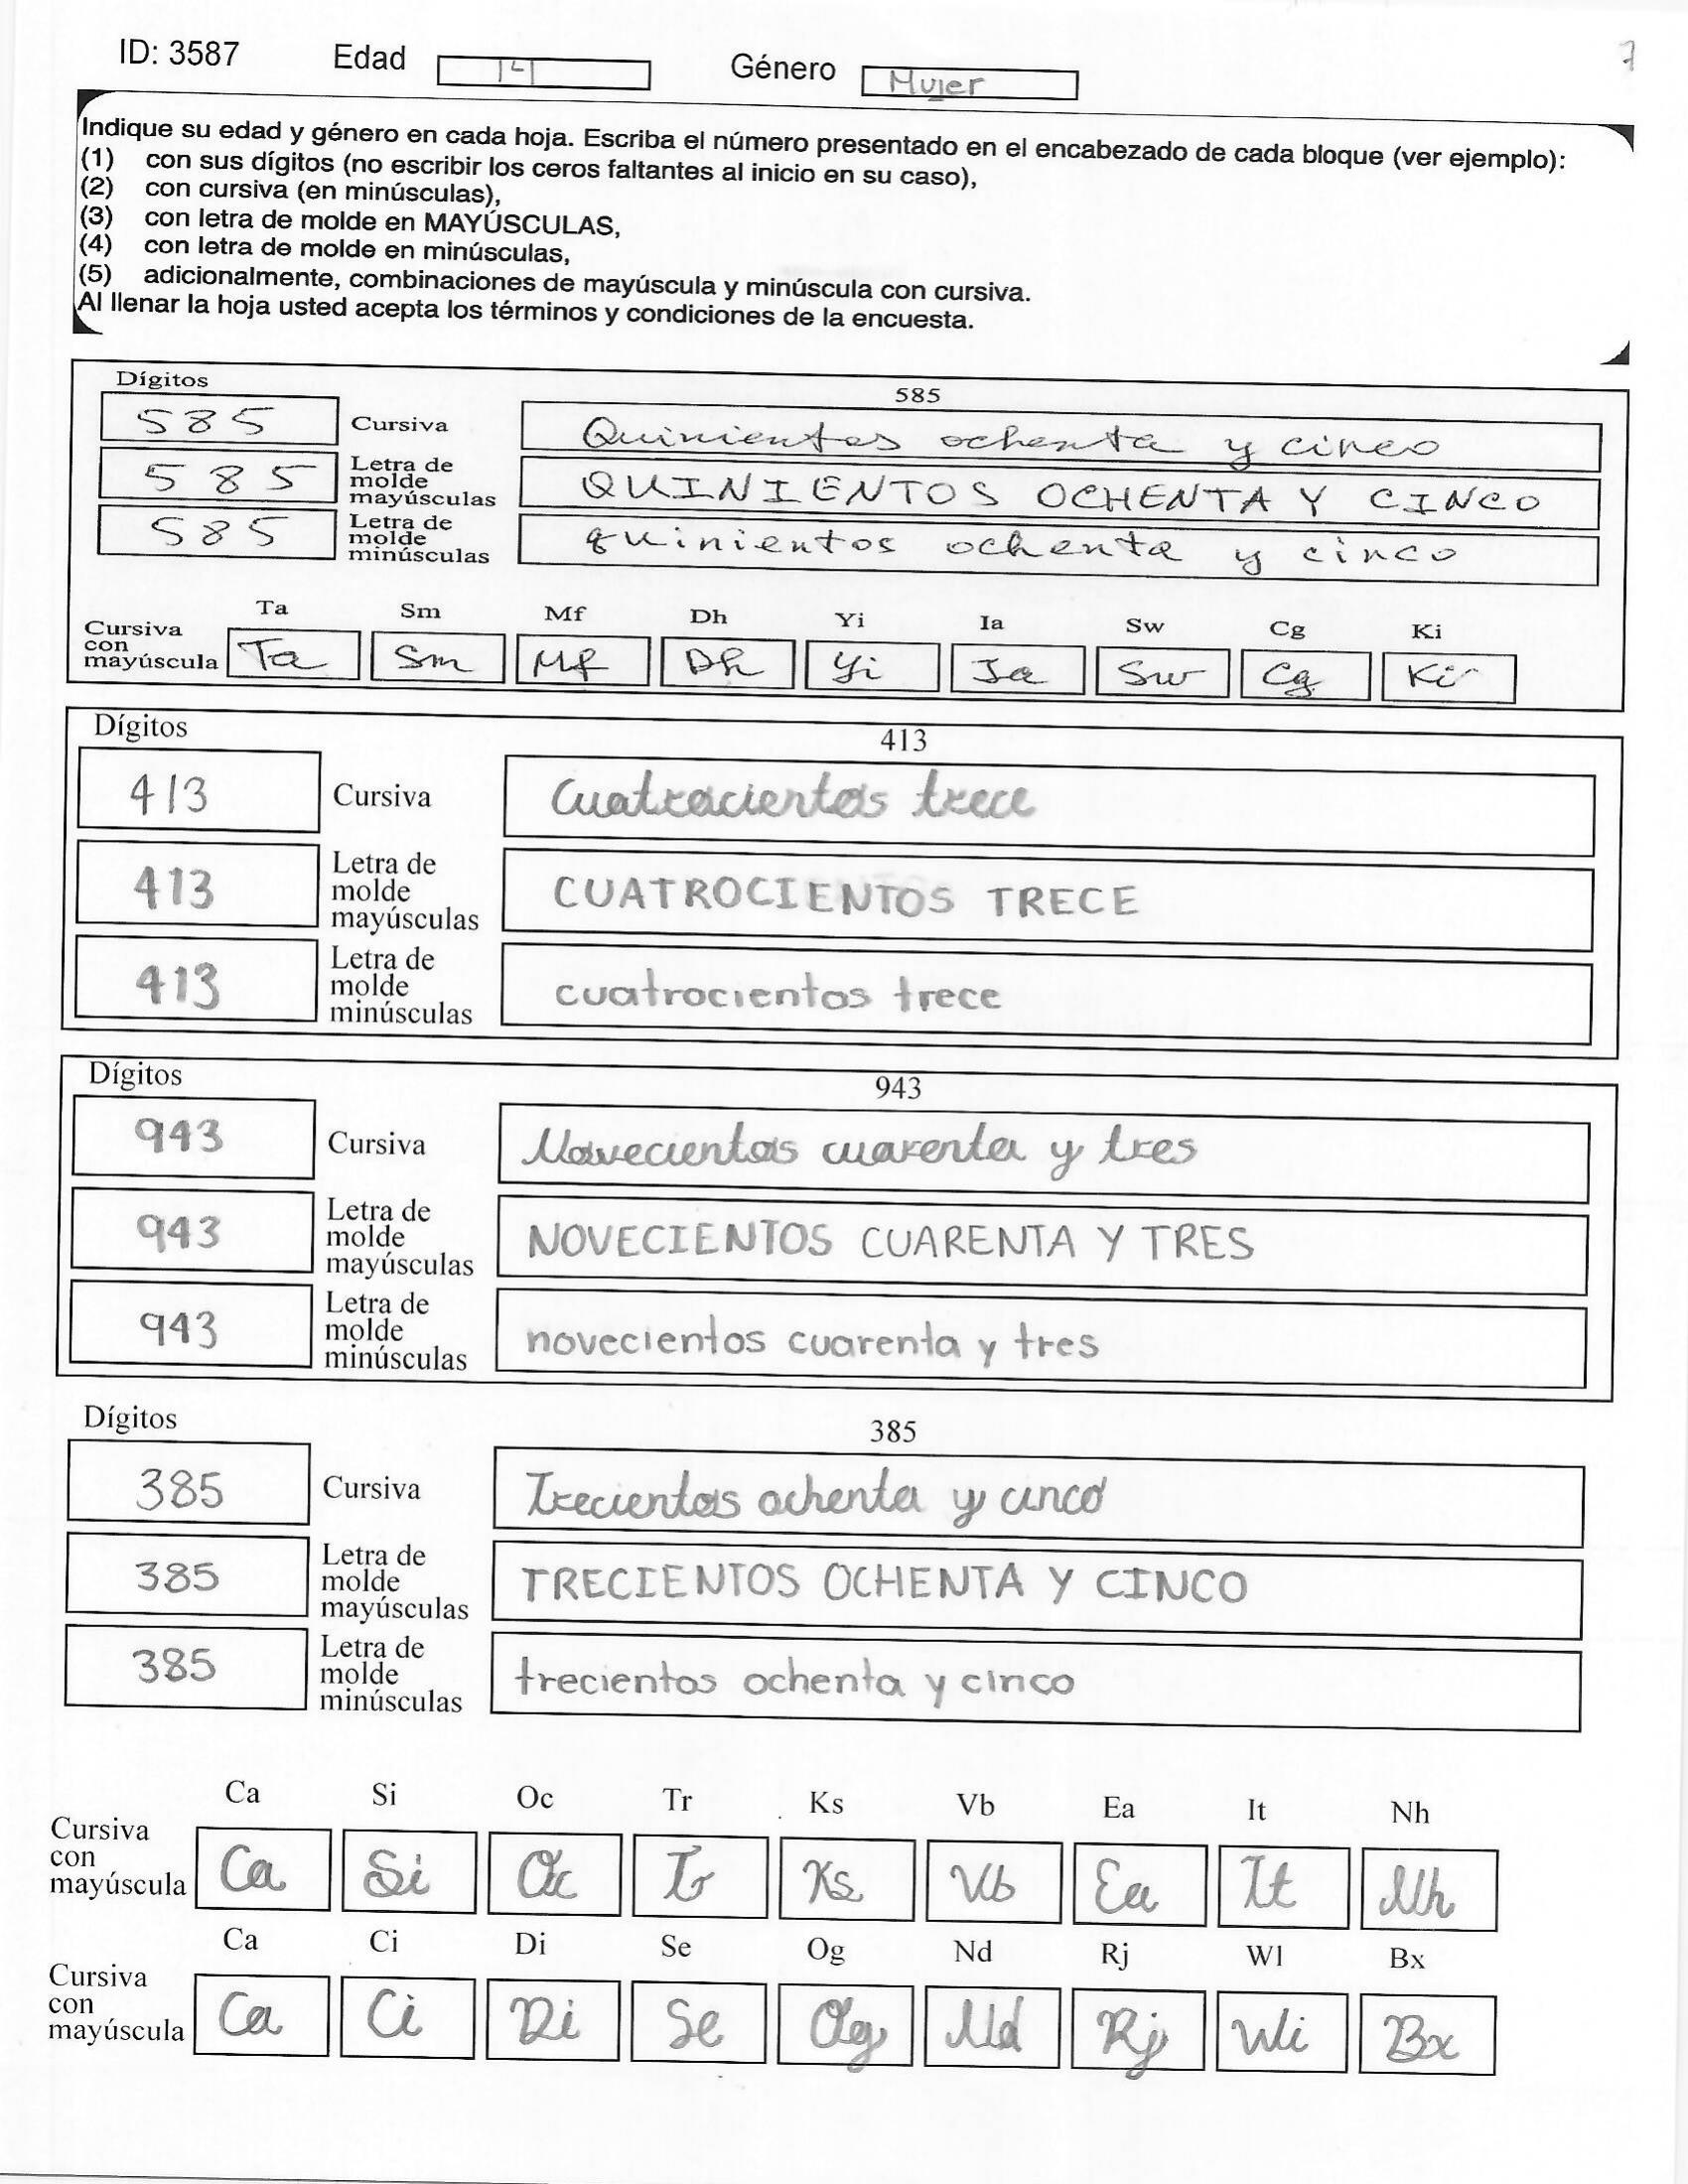 ID: 3587 Edad 14 Género Mujer 7
Indique su edad y género en cada hoja. Escriba el número presentado en el encabezado de cada bloque (ver ejemplo):
(1) con sus dígitos (no escribir los ceros faltantes al inicio en su caso),
(2) con cursiva (en minúsculas),
(3) con letra de molde en MAYÚSCULAS,
(4) con letra de molde en minúsculas,
(5) adicionalmente, combinaciones de mayúscula y minúscula con cursiva.
Al llenar la hoja usted acepta los términos y condiciones de la encuesta.
Dígitos 585
585 Cursiva Quinientos ochenta y cinco
585 Letra de molde mayúsculas QUINIENTOS OCHENTA Y CINCO
585 Letra de molde minúsculas quinientos ochenta y cinco
Ta Sm Mf Dh Yi Ia Sw Cg Ki
Cursiva con mayúscula Ta Sm Mf Dh Yi Ia Sw Cg Ki
Dígitos 413
413 Cursiva Cuatrocientos trece
413 Letra de molde mayúsculas CUATROCIENTOS TRECE
413 Letra de molde minúsculas cuatrocientos trece
Dígitos 943
943 Cursiva Novecientos cuarenta y tres
943 Letra de molde mayúsculas NOVECIENTOS CUARENTA Y TRES
943 Letra de molde minúsculas novecientos cuarenta y tres
Dígitos 385
385 Cursiva Trecientos ochenta y cinco
385 Letra de molde mayúsculas TRECIENTOS OCHENTA Y CINCO
385 Letra de molde minúsculas trecientos ochenta y cinco
Ca Si Oc Tr Ks Vb Ea It Nh
Cursiva con mayúscula Ca Si Oc Tr Ks Vb Ea It Nh
Ca Ci Di Se Og Nd Rj Wl Bx
Cursiva con mayúscula Ca Ci Di Se Og Nd Rj Wi Bx